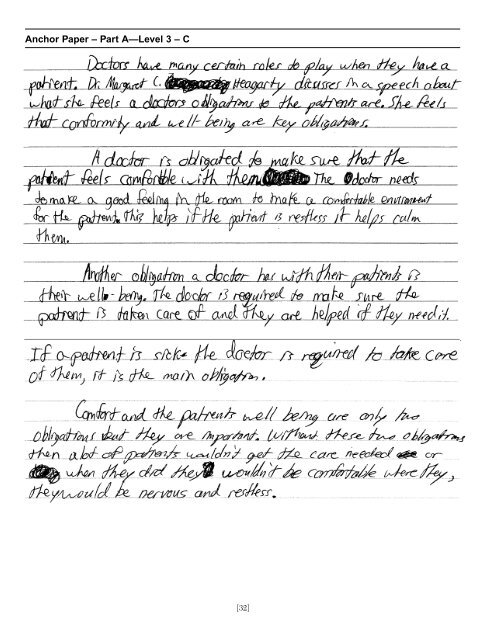 Anchor Paper – Part A—Level 3 – C
Doctors have many certain roles to play when they have a
patient. Dr. Margaret C. Heagarty discusses in a speech about
what she feels a doctors obligations to the patients are. She feels
that conformity and well being are key obligations.
A doctor is obligated to make sure that the
patient feels comfortble with them. The doctor needs
to make a good feeling in the room to make a comfortable enviroment
for the patient. This helps if the patient is restless it helps calm
them.
Another obligation a doctor has with their patients is
their well-being. The doctor is required to make sure the
patient is taken care of and they are helped if they need it.
If a patient is sick the doctor is required to take care
of them, it is the main obligation.
Comfort and the patients well being are only two
obligations but they are important. Without these two obligations
then a lot of patients wouldn't get the care needed or
when they did they wouldn't be comfortable where they,
they would be nervous and restless.
[32]